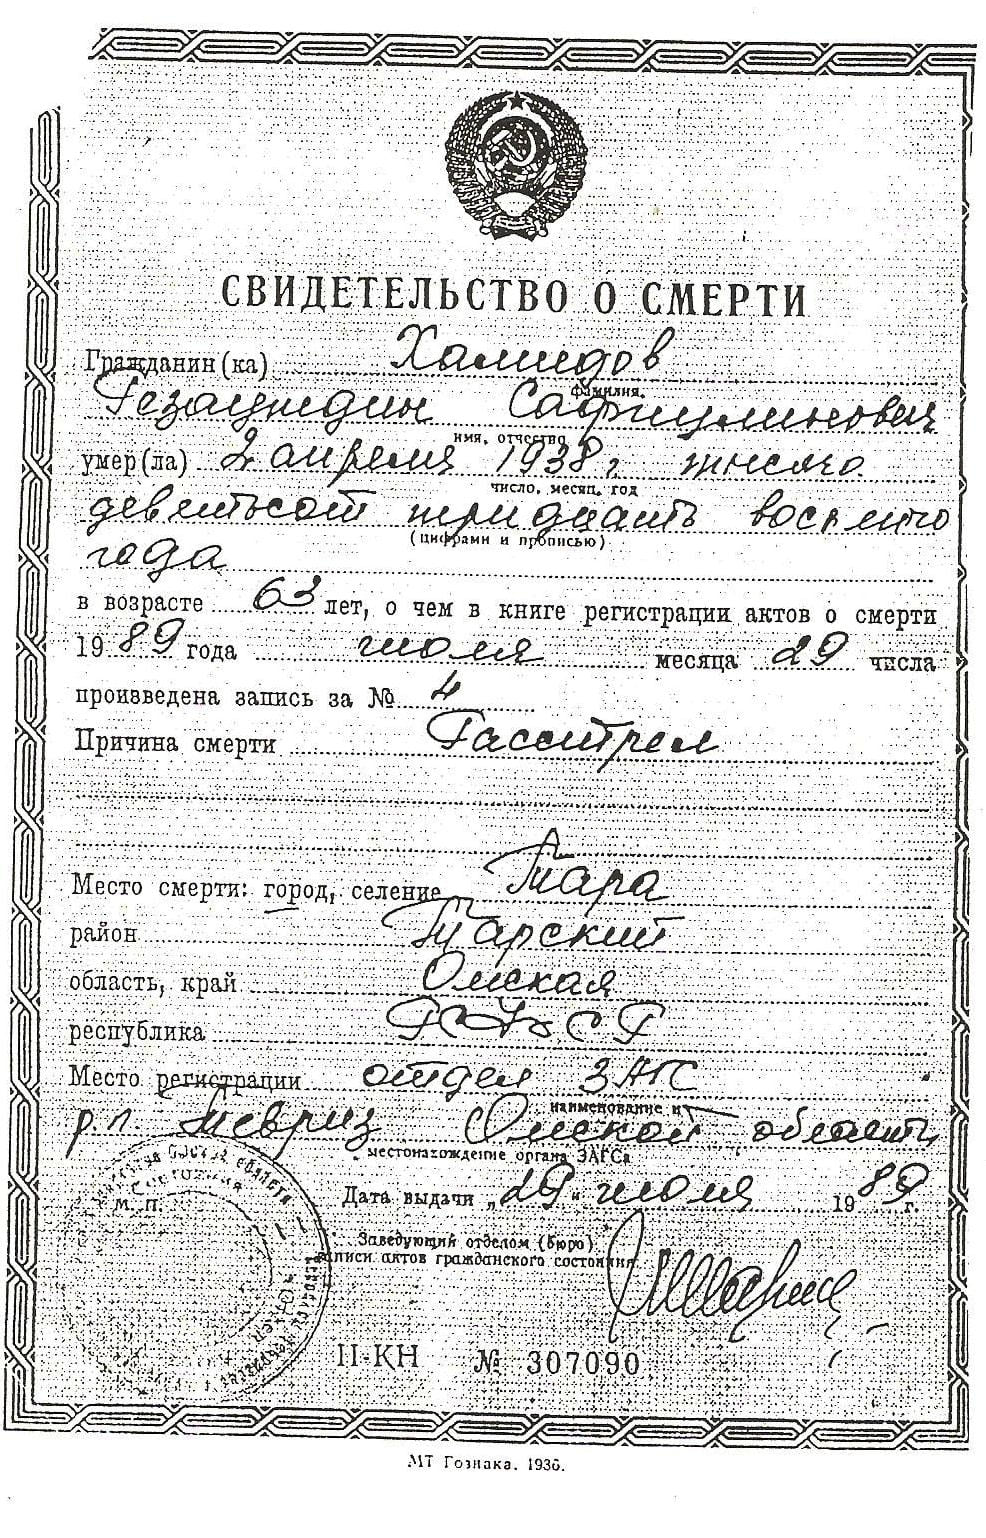 СВИДЕТЕЛЬСТВО О СМЕРТИ
Гражданин(ка) Халидов
фамилия,
Гезаитдин Сафиулинович
имя, отчество
умер(ла) 2 апреля 1938 г. тысяча
число, месяц, год
девятьсот тридцать восьмого
(цифрами и прописью)
года
в возрасте 63 лет, о чем в книге регистрации актов о смерти
1989 года июля месяца 29 числа
произведена запись за № 4
Причина смерти Расстрел
Место смерти: город, селение Тара
район Тарский
область, край Омская
республика РСФСР
Место регистрации отдел ЗАГС
наименование и
р.п. Тевриз Омской области
местонахождение органа ЗАГСа
М. П.
Дата выдачи „29“ июля 1989 г.
Заведующий отделом (бюро)
записи актов гражданского состояния
II-КН № 307090
МТ Гознака. 1936.